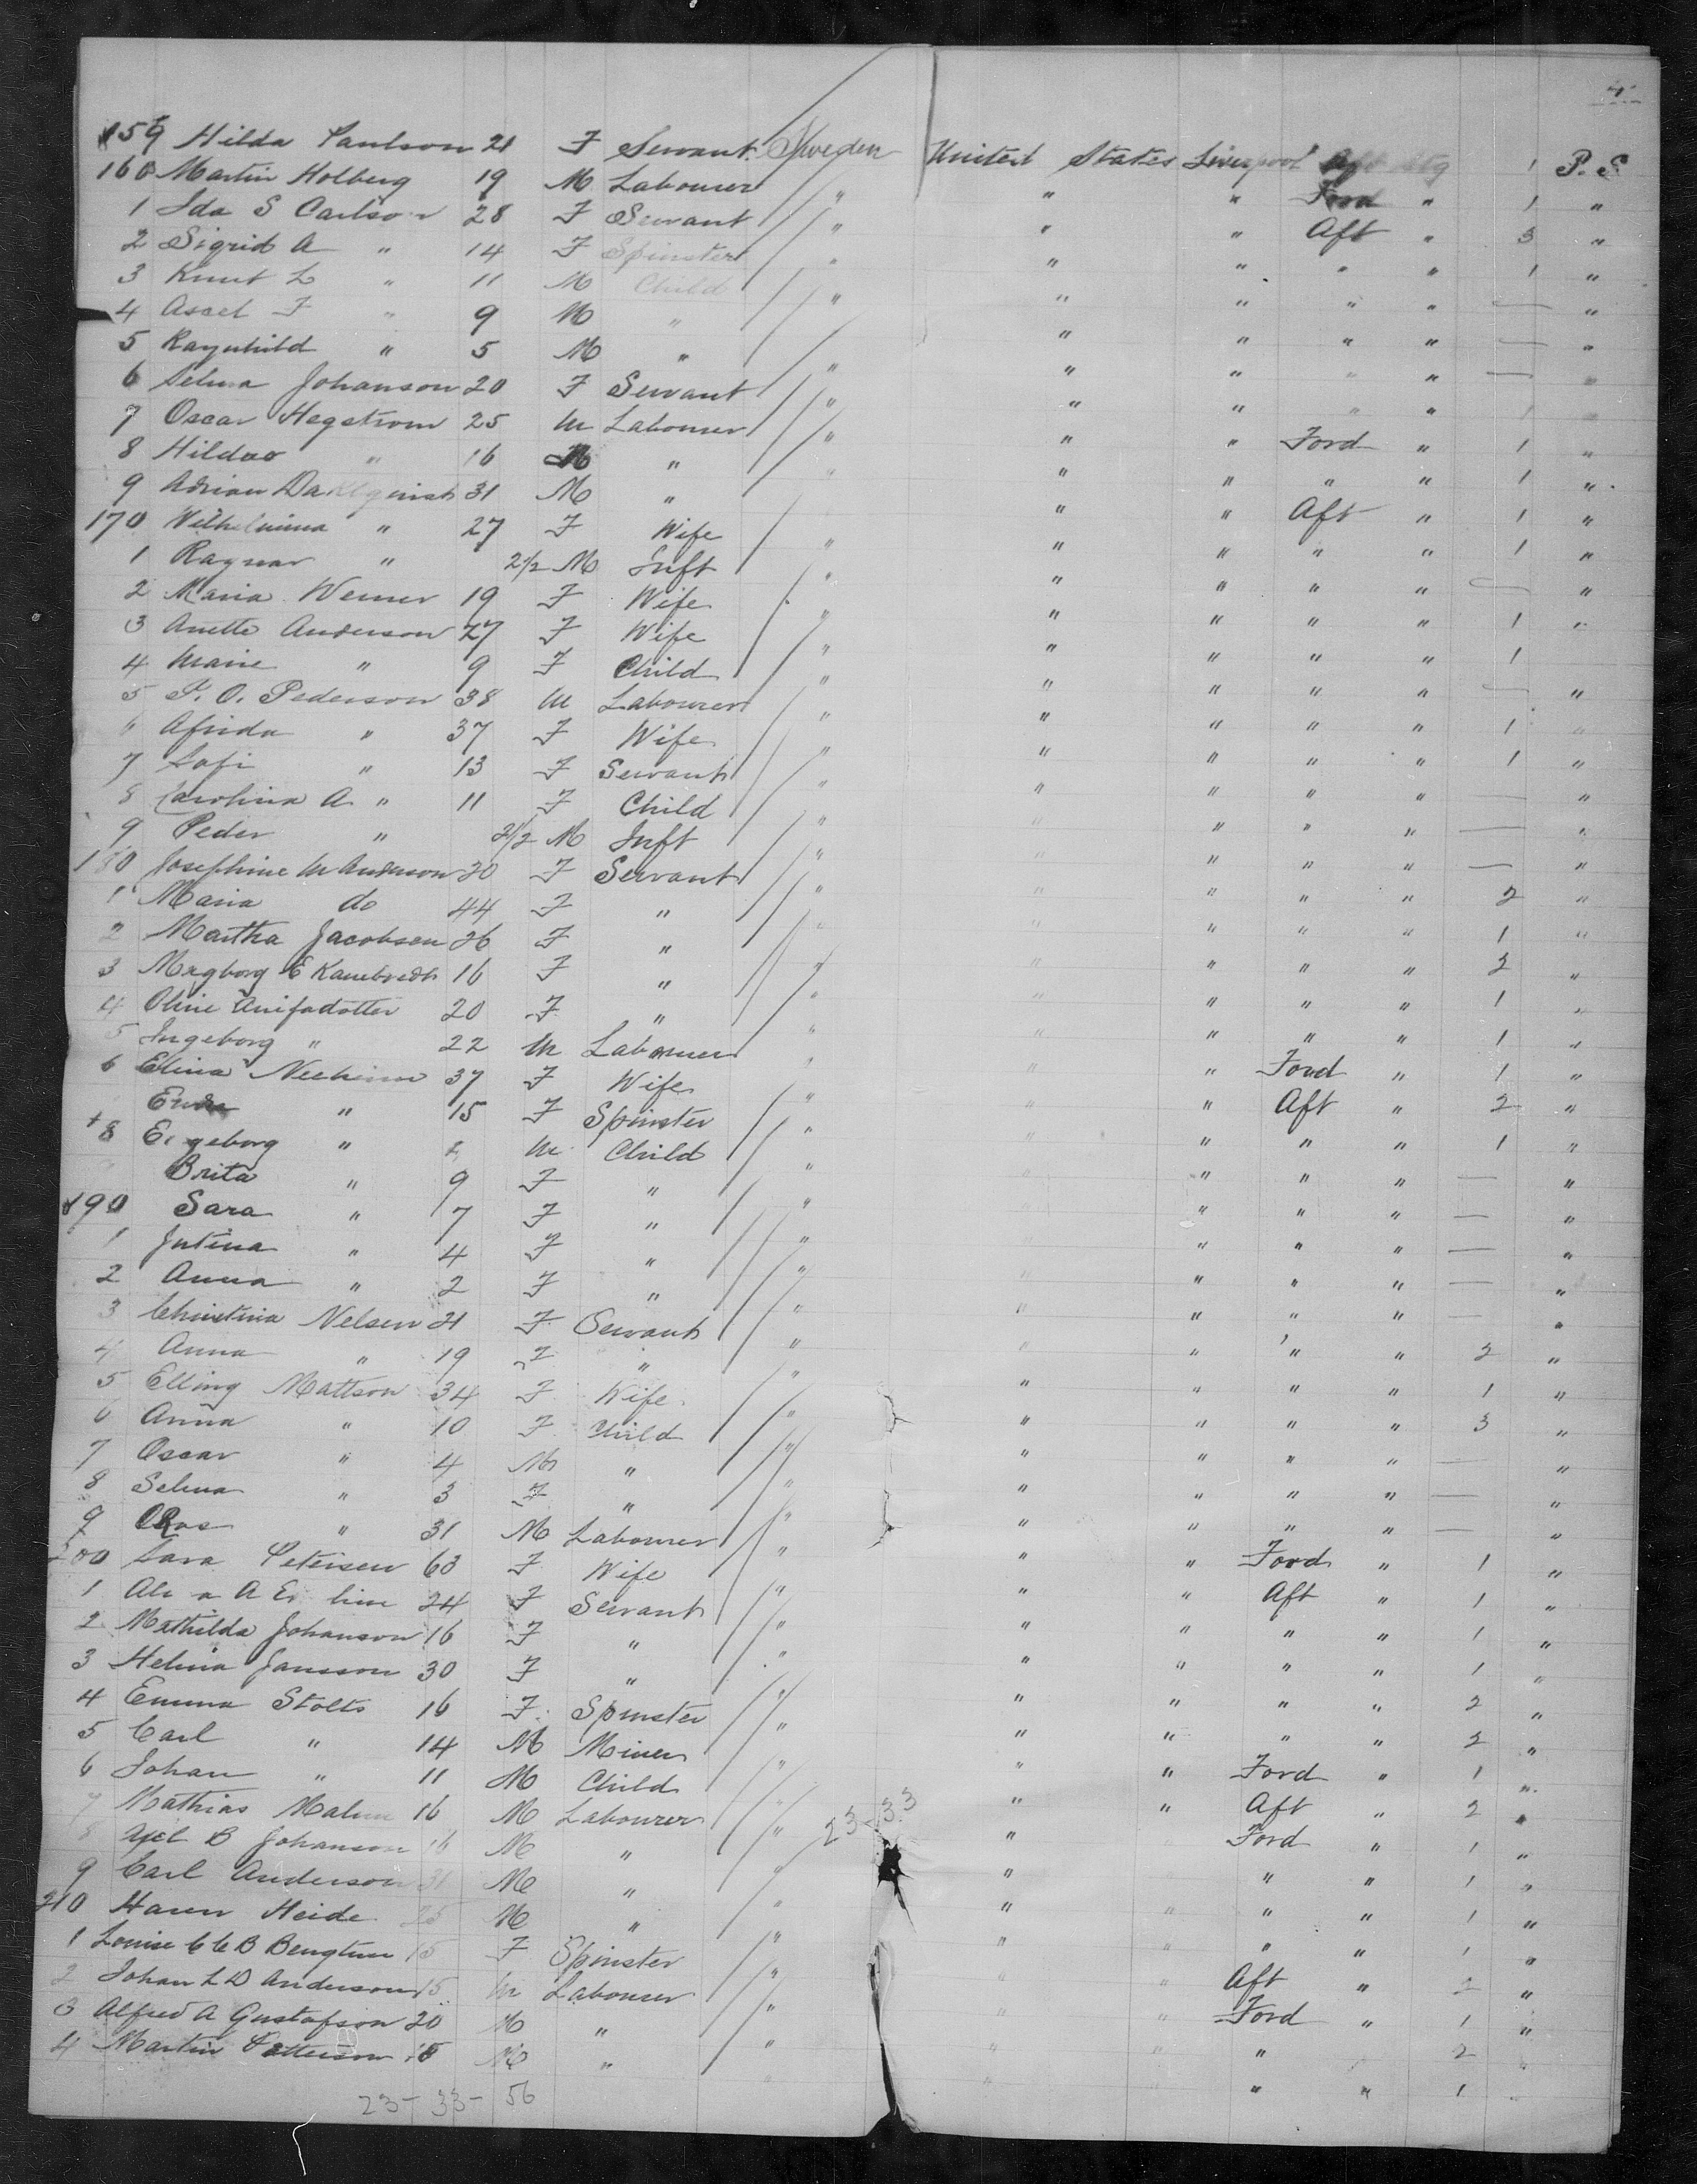 4
159 Hilda Paulson 21 F Servant Sweden United States Liverpool Aft Stg 1 P. S
160 Martin Holberg 19 M Labourer " " " Ford " 1 "
1 Ida S Carlson 28 F Servant " " " Aft " 3 "
2 Sigrid A " 14 F Spinster " " " " " 1 "
3 Knut L " 11 M Child " " " " " — "
4 Axel F " 9 M " " " " " " — "
5 Raguhild " 5 M " " " " " " — "
6 Selma Johanson 20 F Servant " " " " " 1 "
7 Oscar Hegstrom 25 M Labourer " " " Ford " 1 "
8 Hildur " 16 M " " " " " " 1 "
9 Adrian Dahlquist 31 M " " " " Aft " 1 "
170 Wilhelmina " 27 F Wife " " " " " 1 "
1 Ragnar " 2/12 M Inft " " " " " — "
2 Maria Werner 19 F Wife " " " " " 1 "
3 Anette Anderson 27 F Wife " " " " " 1
4 Marie " 9 F Child " " " " " — "
5 P. O. Pederson 38 M Labourer " " " " " 1 "
6 Afrida " 37 F Wife " " " " " 1 "
7 Sofi " 13 F Servant " " " " " — "
8 Carolina A " 11 F Child " " " " " — "
9 Peder " 2/12 M Inft " " " " " — "
180 Josephine M Anderson 20 F Servant " " " " " 2 "
1 Maria do 44 F " " " " " " 1 "
2 Martha Jacobsen 26 F " " " " " " 2 "
3 E 16 F " " " " " " 1 "
4 Oline 20 F " " " " " " 1 "
5 Ingeborg " 22 M Labourer " " " Ford " 1 "
6 Elina 37 F Wife " " " Aft " 2 "
" 15 F Spinster " " " " " 1 "
8 " M Child " " " " " — "
Brita " 9 F " " " " " " — "
190 Sara " 7 F " " " " " " — "
1 Jutina " 4 F " " " " " " — "
2 Anna " 2 F " " " " " " — "
3 Christina Nelsen 21 F Servant " " " " " 2 "
4 Anna " 19 F " " " " " " 1 "
5 Elling Mattson 34 F Wife " " " " " 3 "
6 Anna " 10 F Child " " " " " — "
7 Oscar " 4 M " " " " " " — "
8 Selma " 3 F " " " " " " — "
9 " 31 M Labourer " " " Ford " 1 "
200 Sara Petersen 63 F Wife " " " Aft " 1 "
1 A 24 F Servant " " " " " 1 "
2 Mathilda Johanson 16 F " " " " " " 1 "
3 Helina Jansson 30 F " " " " " " 2 "
4 Emma Stolts 16 F Spinster " " " " " 2 "
5 Carl " 14 M Miner " " " Ford " 1 "
6 Johan " 11 M Child " " " Aft " 2 "
7 Mathias Malm 16 M Labourer " 23-33 " Ford " 1 "
8 Axel B Johanson 16 M " " " " " 1 "
9 Carl Anderson 31 M " " " " " " 1 "
210 Haren Heide 25 M " " " " " " 1 "
1 Louise C C B Bengtson 15 F Spinster " " " Aft " 2 "
2 Johan L D Anderson 15 M Labourer " " " Ford " 1 "
3 Alfred A Gustafson 20 M " " " " " 2 "
4 Martin 18 M " " " " " " 1
23-33-56